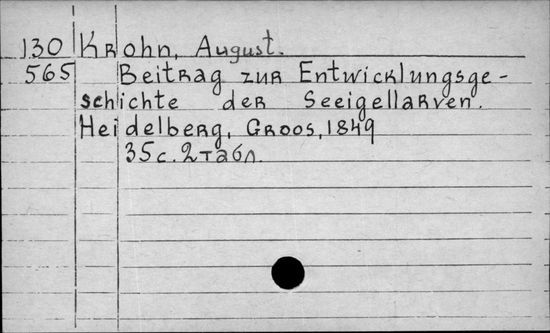 130 Krohn, August.
565 Beitrag zur Entwicklungsge-
schichte der Seeigellarven.
Heidelberg, Groos, 1849
35 с. 2 табл.